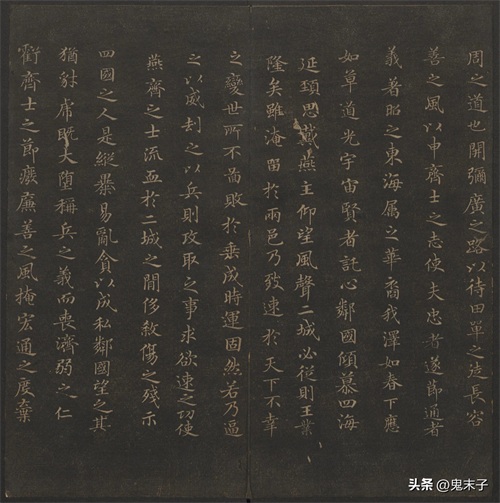 周之道也開彌廣之路以待田單之徒長容
善之風以申齊士之志使夫忠者遂節通者
義著昭之東海屬之華裔我澤如春下應
如草道光宇宙賢者託心鄰國傾慕四海
延頸思戴燕主仰望風聲二城必從則王業
隆矣雖淹留於兩邑乃致速於天下不幸
之變世所不啚敗於垂成時運固然若乃逼
之以威刦之以兵則攻取之事求欲速之功使
燕齊之士流血於二城之間侈殺傷之殘示
四國之人是縱暴易亂貪以成私鄰國望之其
猶豺虎既大墮稱兵之義而喪濟弱之仁
虧齊士之節廢廉善之風掩宏通之度棄
头条 @鬼末子